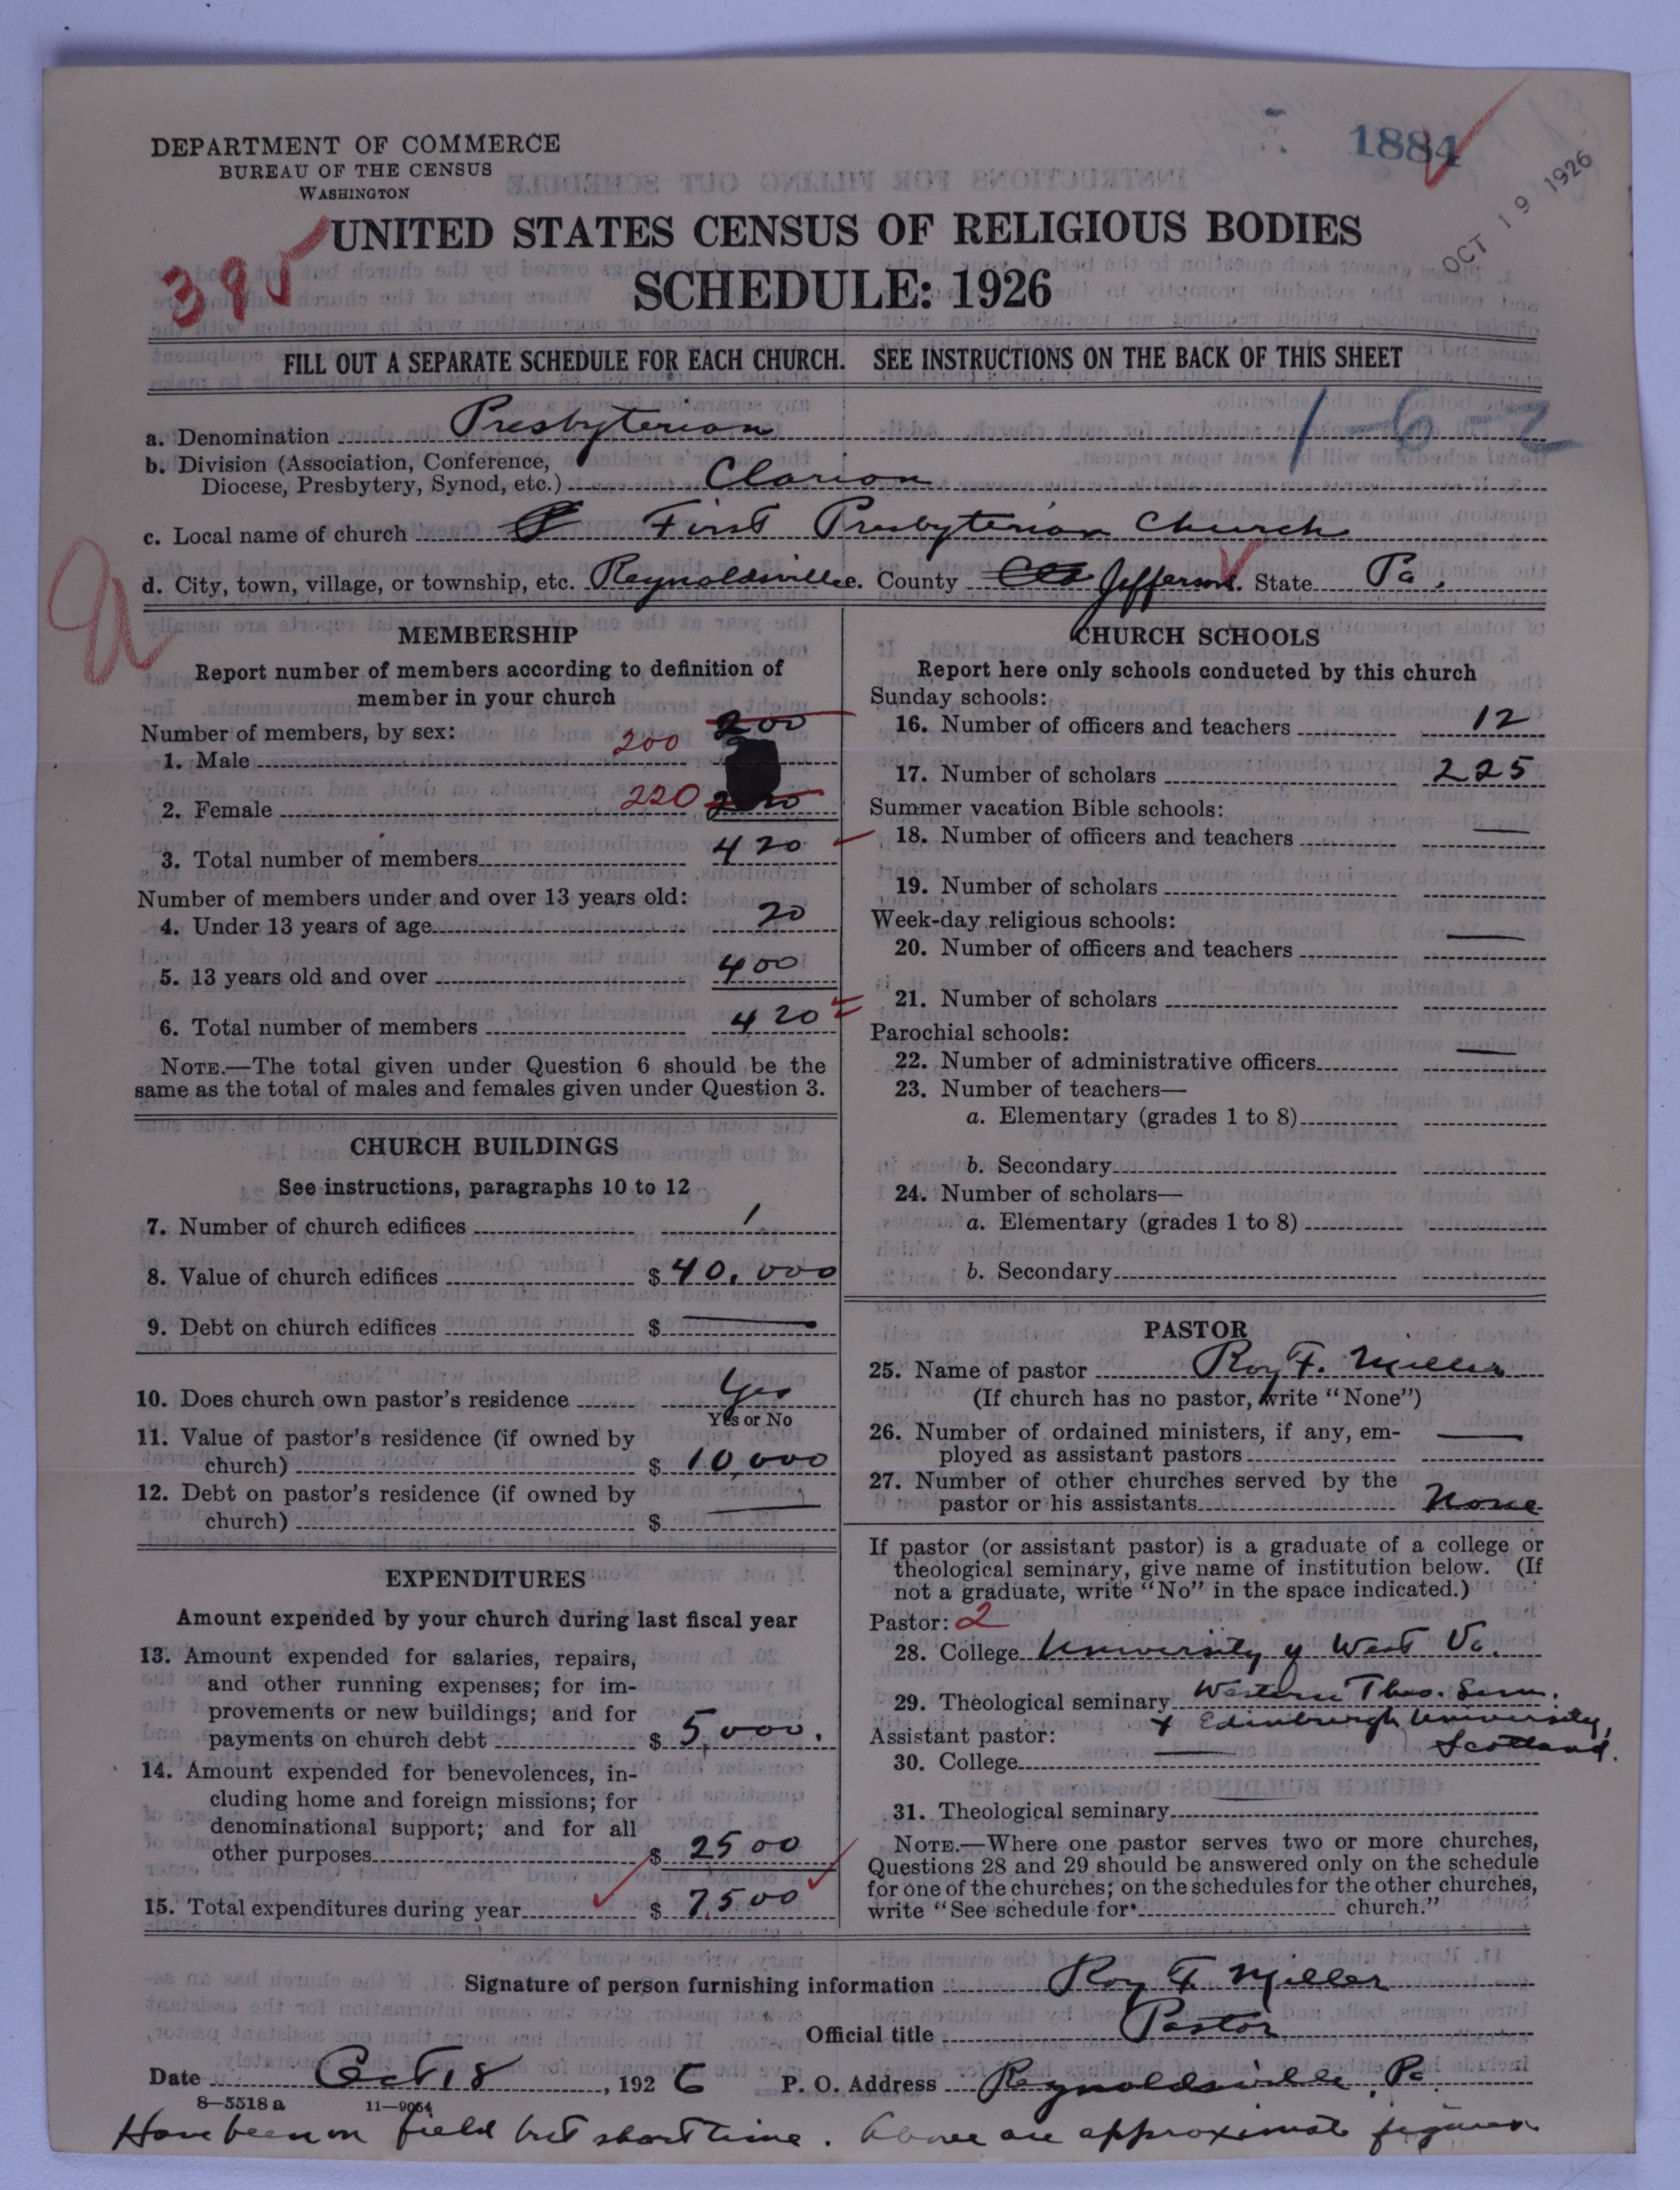 DEPARTMENT OF COMMERCE
BUREAU OF THE CENSUS
WASHINGTON
1884
OCT 19 1926
395
UNITED STATES CENSUS OF RELIGIOUS BODIES
SCHEDULE: 1926
FILL OUT A SEPARATE SCHEDULE FOR EACH CHURCH. SEE INSTRUCTIONS ON THE BACK OF THIS SHEET
1-6-2
a. Denomination Presbyterian
b. Division (Association, Conference,
Diocese, Presbytery, Synod, etc.) Clarion
c. Local name of church First Presbyterian Church
d. City, town, village, or township, etc. Reynoldsville e. County Jefferson f. State Pa.
MEMBERSHIP
Report number of members according to definition of
member in your church
Number of members, by sex:
200
1. Male 200
2. Female 220
3. Total number of members 420
Number of members under and over 13 years old:
4. Under 13 years of age 20
5. 13 years old and over 400
6. Total number of members 420
NOTE.—The total given under Question 6 should be the
same as the total of males and females given under Question 3.
CHURCH BUILDINGS
See instructions, paragraphs 10 to 12
7. Number of church edifices 1
8. Value of church edifices $40,000
9. Debt on church edifices $ —
10. Does church own pastor's residence Yes
Yes or No
11. Value of pastor's residence (if owned by
church) $10,000
12. Debt on pastor's residence (if owned by
church) $ —
EXPENDITURES
Amount expended by your church during last fiscal year
13. Amount expended for salaries, repairs,
and other running expenses; for im-
provements or new buildings; and for
payments on church debt $5,000.
14. Amount expended for benevolences, in-
cluding home and foreign missions; for
denominational support; and for all
other purposes $2500
15. Total expenditures during year $7,500
CHURCH SCHOOLS
Report here only schools conducted by this church
Sunday schools:
16. Number of officers and teachers 12
17. Number of scholars 225
Summer vacation Bible schools:
18. Number of officers and teachers —
19. Number of scholars
Week-day religious schools:
20. Number of officers and teachers —
21. Number of scholars
Parochial schools:
22. Number of administrative officers —
23. Number of teachers—
a. Elementary (grades 1 to 8)
b. Secondary
24. Number of scholars—
a. Elementary (grades 1 to 8)
b. Secondary
PASTOR
25. Name of pastor Roy F. Miller
(If church has no pastor, write "None")
26. Number of ordained ministers, if any, em-
ployed as assistant pastors —
27. Number of other churches served by the
pastor or his assistants None
If pastor (or assistant pastor) is a graduate of a college or
theological seminary, give name of institution below. (If
not a graduate, write "No" in the space indicated.)
Pastor: 2
28. College University of West Va.
29. Theological seminary Western Theo. Sem.
+ Edinburgh University,
Assistant pastor: Scotland.
30. College —
31. Theological seminary
NOTE.—Where one pastor serves two or more churches,
Questions 28 and 29 should be answered only on the schedule
for one of the churches; on the schedules for the other churches,
write "See schedule for church."
Signature of person furnishing information Roy F. Miller
Official title Pastor
Date Oct 18, 1926 P. O. Address Reynoldsville, Pa.
8-5518a 11-9054
Have been on field but short time. Above are approximate figures